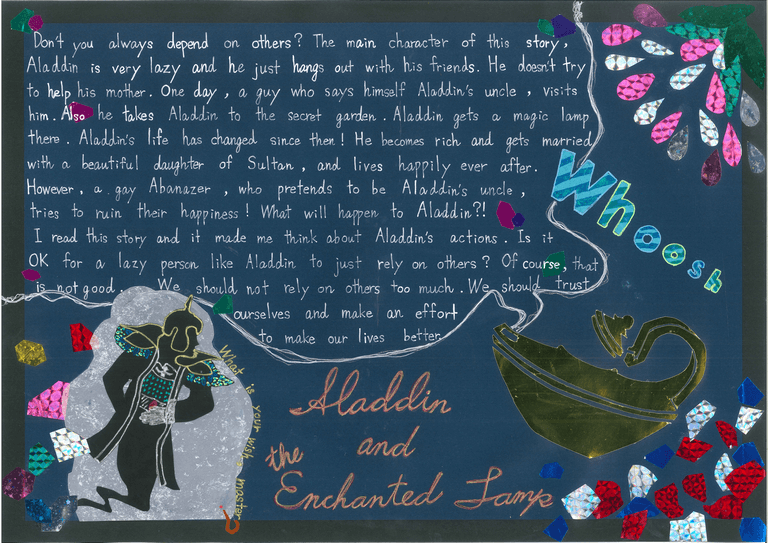 Don't you always depend on others? The main character of this story,
Aladdin is very lazy and he just hangs out with his friends. He doesn't try
to help his mother. One day, a guy who says himself Aladdin's uncle, visits
him. Also he takes Aladdin to the secret garden. Aladdin gets a magic lamp
there. Aladdin's life has changed since then! He becomes rich and gets married
with a beautiful daughter of Sultan, and lives happily ever after.
However, a gay Abanazer, who pretends to be Aladdin's uncle,
tries to ruin their happiness! What will happen to Aladdin?!
I read this story and it made me think about Aladdin's actions. Is it
OK for a lazy person like Aladdin to just rely on others? Of course, that
is not good. We should not rely on others too much. We should trust
ourselves and make an effort
to make our lives better.
Whoosh
What is your wish master?
Aladdin
and
the
Enchanted Lamp